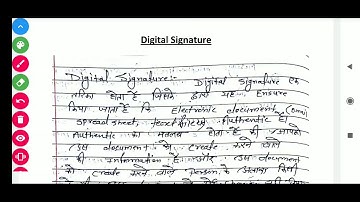 Digital Signature
Digital Signature:- Digital Signature एक
तरीका होता है जिसके द्वारा यह Ensure
किया जाता है कि Electronic document (Email,
Spreadsheet, textfile) Authentic है।
Authentic का मतलब होता है की आपको
उस document को create करने वाले
की information है और उस document
को create करने वाले person के अलावा किसी